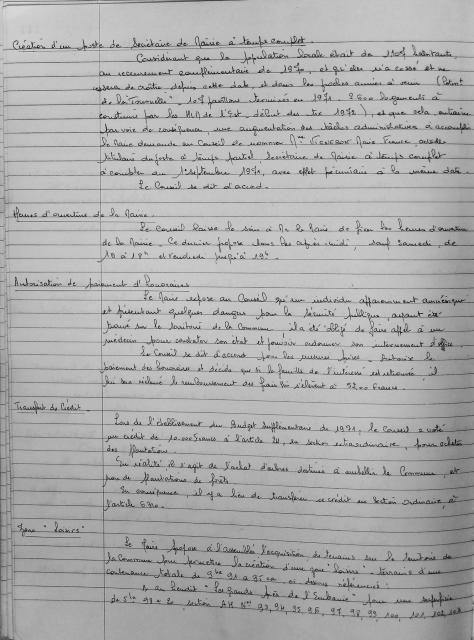 Création d'un poste de Secrétaire de Mairie à temps complet.
Considérant que la population locale était de 1107 habitants,
au recensement complémentaire de 1970, et qu'elle n'a cessé et ne
cessera de croître, depuis cette date, et dans les proches années à venir
de la Tournelle", 107 pavillons terminés en 1971. 2 600 logements à
construire par les HLM de l'Est, début des tx 1972), et que cela, entraîne
par voie de conséquence, une augmentation des tâches administratives à accomplir
le Maire demande au Conseil de nommer Mme Marie France,
titulaire du poste à temps partiel, Secrétaire de Mairie à temps complet
à compter du 1er septembre 1971, avec effet pécuniaire à la même date.
Le Conseil se dit d'accord.
Heures d'ouverture de la Mairie.
Le Conseil laisse le soin à Mr le Maire de fixer les heures d'ouverture
de la Mairie. Ce dernier propose dans les après-midi, sauf samedi, de
à 18h et vendredi jusqu'à 19h.
Autorisation de paiement d'honoraires
Le Maire expose au Conseil qu'un individu apparemment amnésique
et présentant quelques dangers pour la sécurité publique, ayant été
trouvé sur le territoire de la Commune, il a été obligé de faire appel à un
médecin pour constater son état et pouvoir ordonner son internement d'office.
Le Conseil se dit d'accord pour les mesures prises. Autorise le
paiement des honoraires et décide que si la famille de l'intéressé est retrouvée, il
lui sera réclamé le remboursement des frais s'élèvent à Francs.
Transfert de Crédit
Lors de l'établissement du Budget Supplémentaire de 1971, le Conseil a voté
un crédit de 10.000 Francs à l'article 21, en section extraordinaire, pour achats
des plantations.
En réalité, il s'agit de l'achat d'arbres destinés à embellir la Commune, et
non de plantations de forêts
En conséquence, il y a lieu de transférer ce crédit en Section ordinaire, à
l'article
Zone "loisirs"
Le Maire propose à l'assemblée l'acquisition de terrains sur le territoire de
la Commune pour permettre la création d'une zone "loisirs" - terrains d'une
contenance totale de 9 ha 91 a 75 ca ci dessous référencés:
au lieudit "Les grands Prés de l'Embarie" pour une superficie
de section AH Nos 93, 94, 95, 96, 97, 98, 99, 100, 101, 102